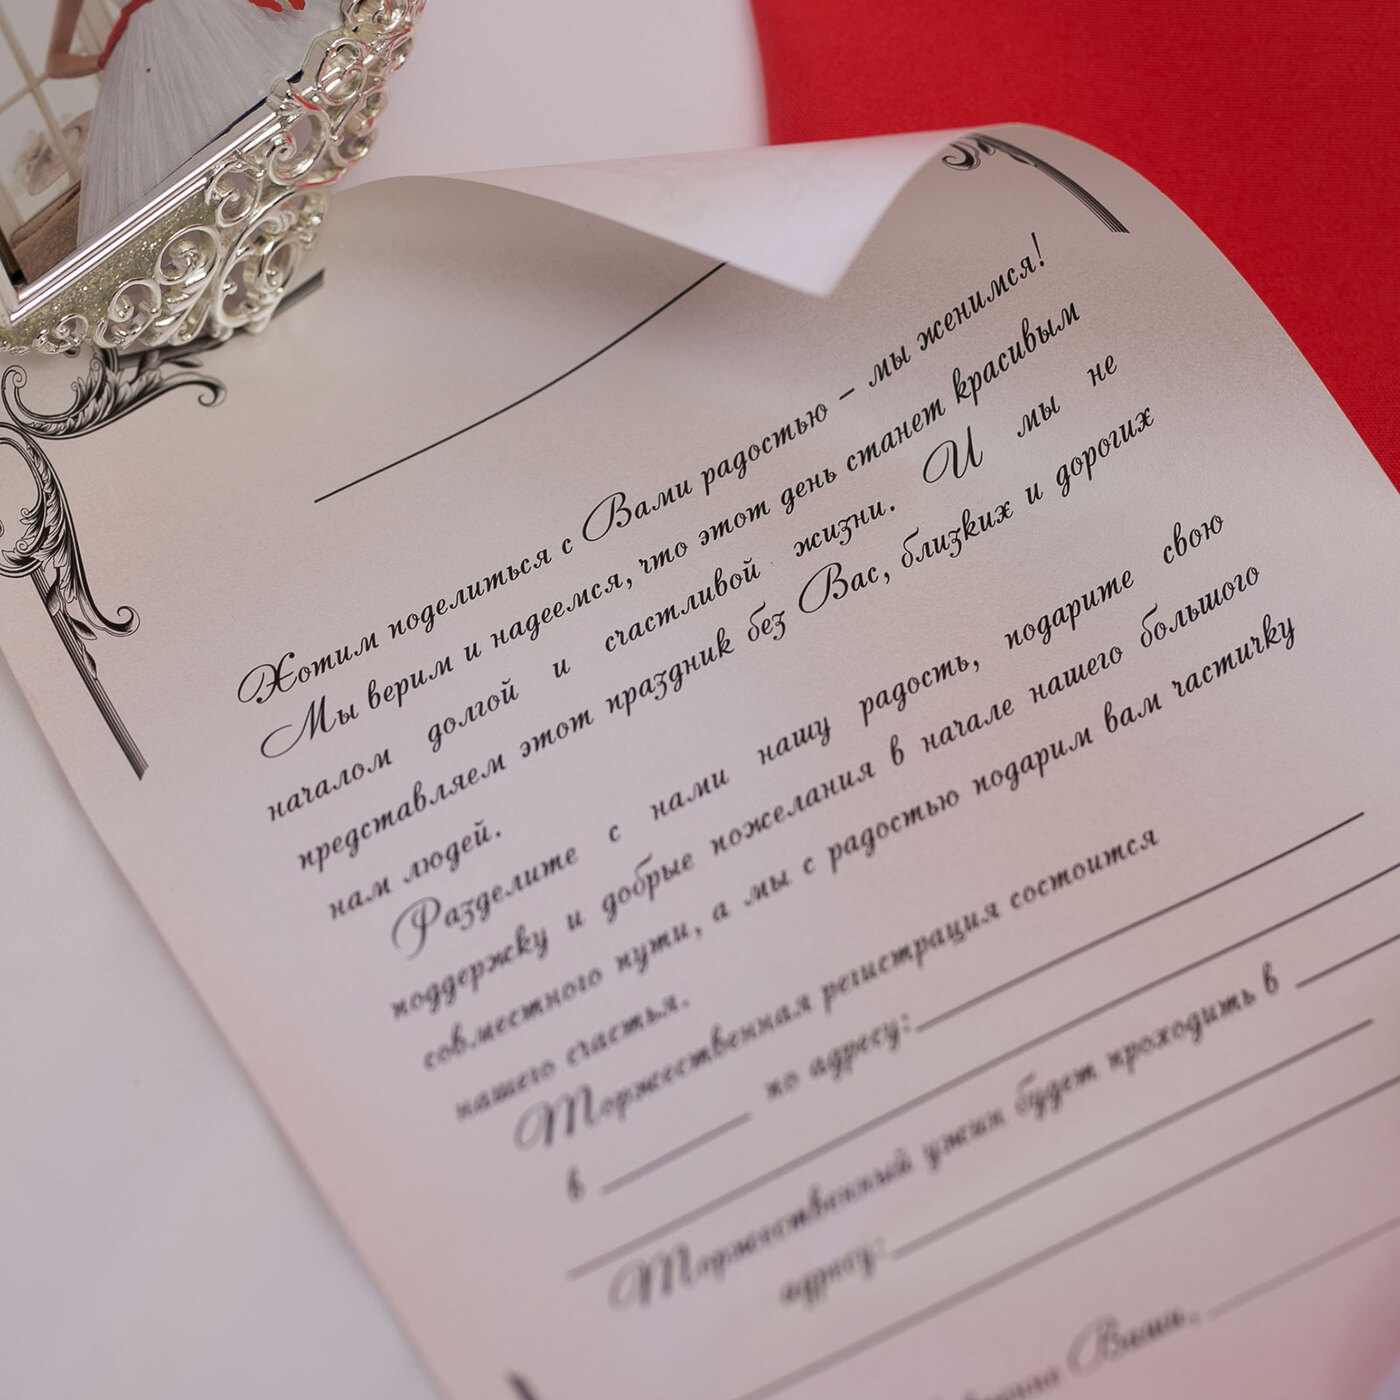 Хотим поделиться с Вами радостью – мы женимся!
Мы верим и надеемся, что этот день станет красивым
началом долгой и счастливой жизни. И мы не
представляем этот праздник без Вас, близких и дорогих
нам людей.
Разделите с нами нашу радость, подарите свою
поддержку и добрые пожелания в начале нашего большого
совместного пути, а мы с радостью подарим вам частичку
нашего счастья.
Торжественная регистрация состоится
в ________ по адресу:____________________
Торжественный ужин будет проходить в ______
адресу:____________________
Вами, ____________